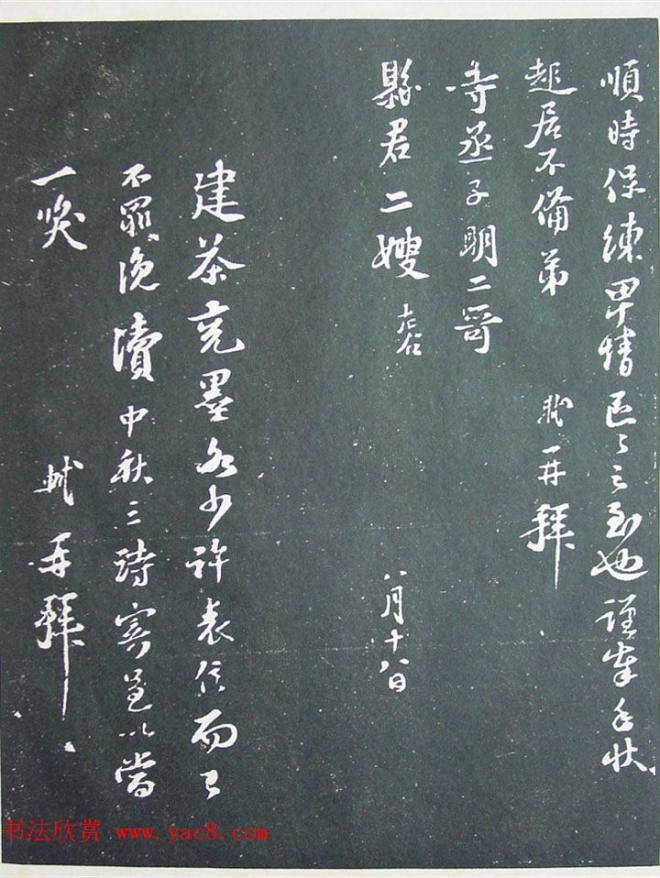 順時保練卑情區〻之至也謹奉手狀
起居不備弟 軾再拜
寺丞子明二哥
縣君二嫂 座右 八月十八日
建茶兗墨各少許表信而已
不罪浼瀆中秋三詩寄呈以當
一笑 軾再拜
书法欣赏 www.yac8.com